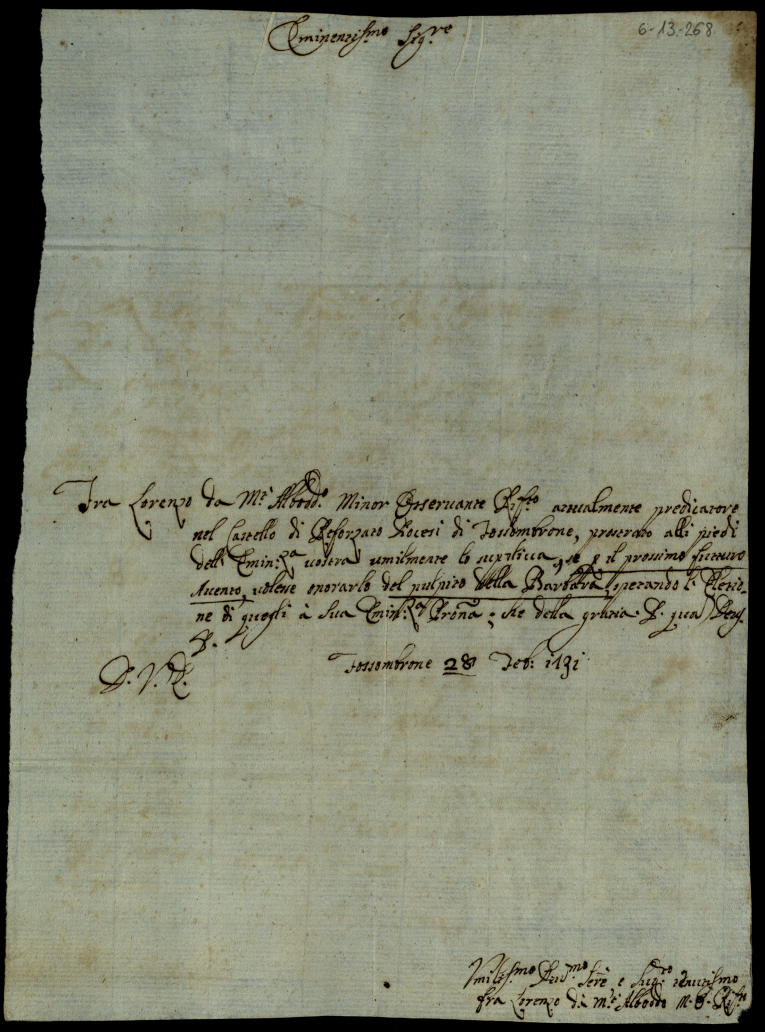 6-13-268
Eminentis.mo Sig.re
Fra Lorenzo da M.te Albodd.o Minor Osservante Rif.to attualmente predicatore
nel Castello di Reforzato Diocesi di Fossombrone, prostrato alli piedi
dell'Emin:za vostra umilmente lo supplica, se p il prossimo futuro
Avento, volesse onorarlo del pulpito della Barbara, spettando l'Elezio-
ne di quegli à Sua Emin:za Prona; che della grazia. &. quas Deus
&.
Fossombrone 28 Feb: 1731
D. V. E.
Umiliss.mo Devu.mo Serv.e e Sudd.to
fra Lorenzo di M.te Albodo M. O. Rif.to